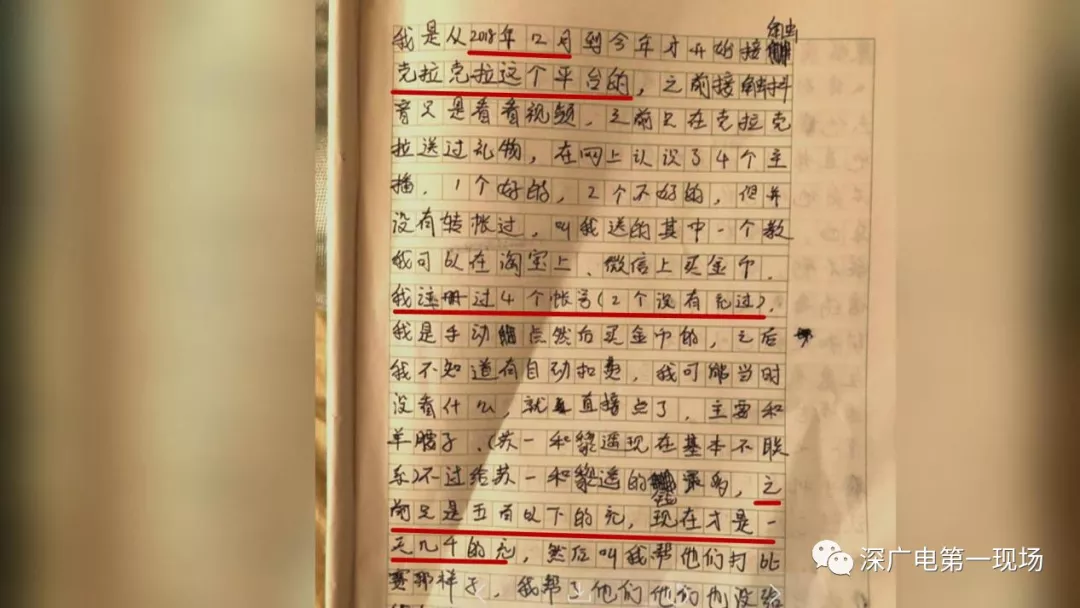 我是从2018年12月到今年才开始接触
克拉克拉这个平台的，之前接触抖
音只是看看视频，之前只在克拉克
拉送过礼物，在网上认识了4个主
播，1个好的，2个不好的，但并
没有转帐过，叫我送的其中一个教
我可以在淘宝上、微信上买金币，
我注册过4个帐号(2个没有充过)，
我是手动点然后买金币的，之后
我不知道有自动扣费，我可能当时
没看什么，就直接点了，主要和
羊腰子、(苏一和黎遥现在基本不联
系)不过给苏一和黎遥的最多，之
前只是五百以下的充，现在才是一
天几千的充，然后叫我帮他们打比
赛那样子，我帮了他们他们也没给
深广电第一现场